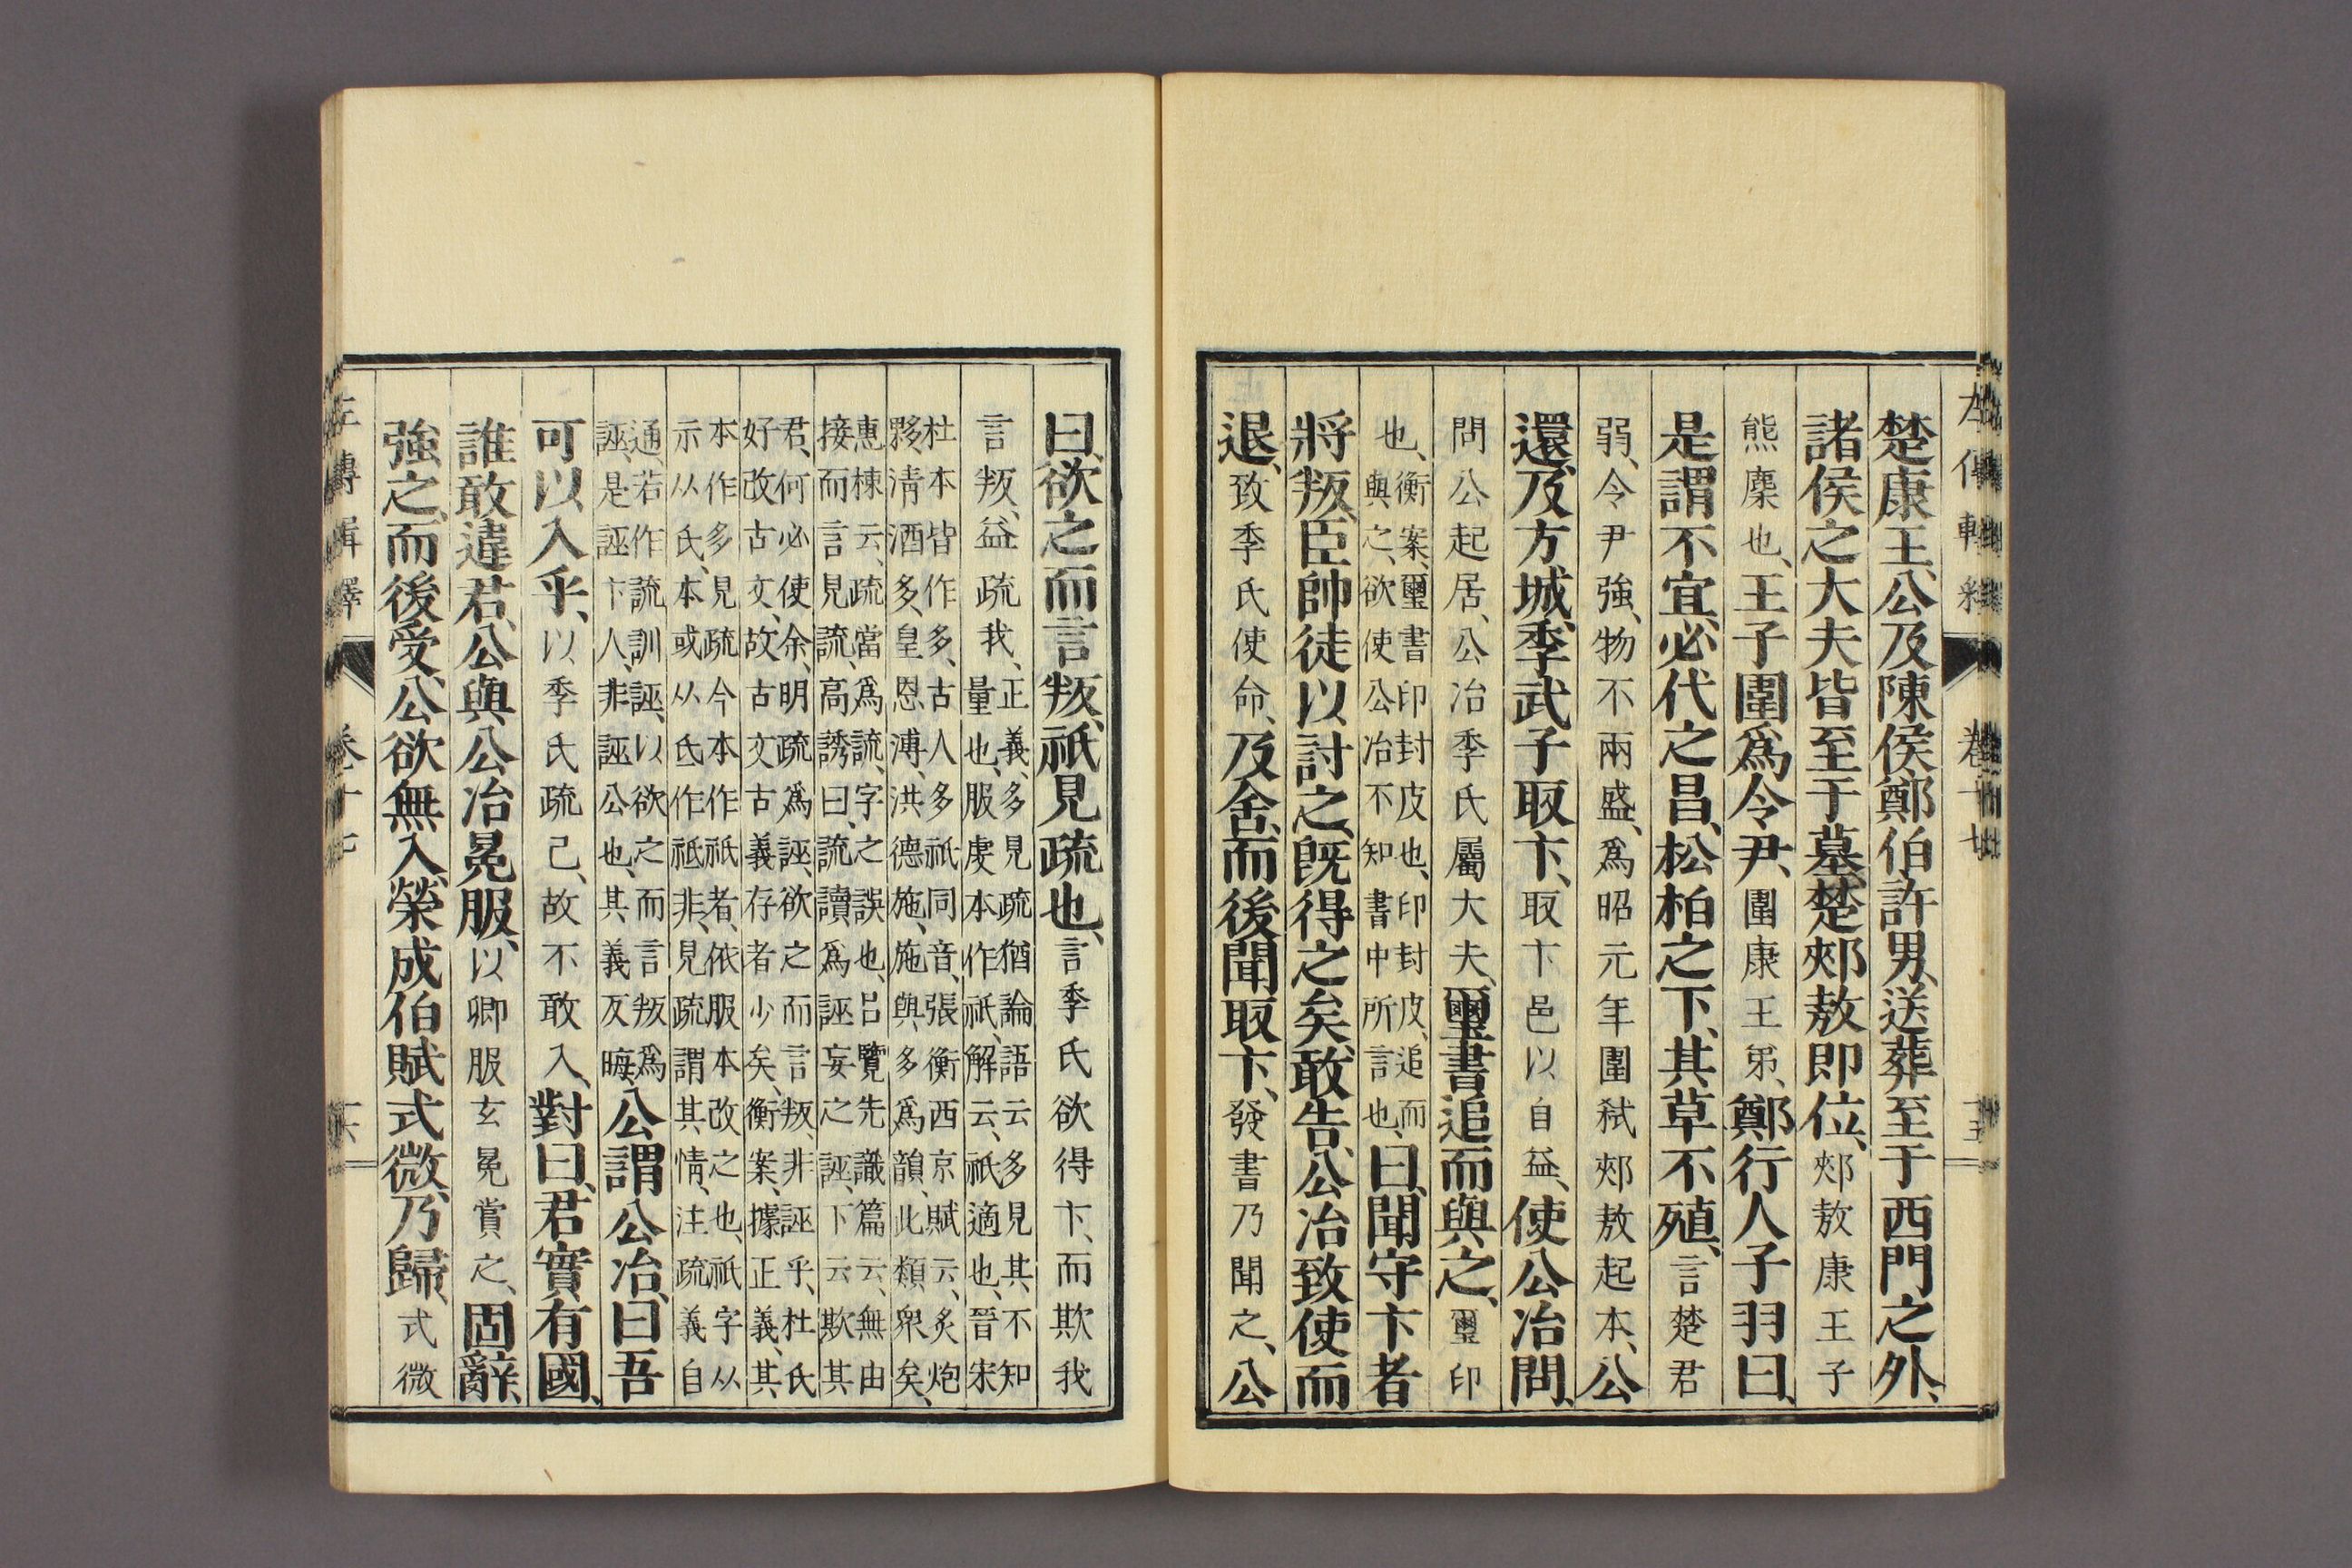 楚康王、公及陳侯鄭伯許男、送葬至于西門之外、
諸侯之大夫皆至于墓、楚郟敖即位、郟敖康王子
熊麇也、王子圍爲令尹、圍康王弟、鄭行人子羽曰、
是謂不宜、必代之昌、松柏之下、其草不殖、言楚君
弱、令尹強、物不兩盛、爲昭元年圍弑郟敖起本、公
還、及方城、季武子取卞、取卞邑以自益、使公冶問、
問公起居、公冶季氏屬大夫、璽書追而與之、璽印
也、衡案、璽書印封皮也、印封皮、追而
與之、欲使公冶不知書中所言也、曰、聞守卞者
將叛、臣帥徒以討之、既得之矣、敢告、公冶致使而
退、致季氏使命、及舍而後聞取卞、發書乃聞之、公
曰、欲之而言叛、祇見疏也、言季氏欲得卞、而欺我
言叛、益疏我、正義、多見疏猶論語云多見其不知
量也、服虔本作祇、解云、祇適也、晉宋
杜本皆作多、古人多祇同音、張衡西京賦云、炙炮
夥、清酒多、皇恩溥、洪德施、施與多爲韻、此類衆矣、
惠棟云、疏當爲䟽、字之誤也、呂覽先識篇云、無由
接而言見䟽、高誘曰、䟽讀爲誣妄之誣、下云欺其
君、何必使余、明疏爲誣、欲之而言叛、非誣乎、杜氏
好改古文、故古文古義存者少矣、衡案、據正義、其
本作多見疏、今本作祇者、依服本改之也、祇字从
示从氏、本或从氐作祗非、見疏謂其情、注疏義自
通、若作䟽訓誣、以欲之而言叛爲
誣、是誣卞人、非誣公也、其義反晦、公謂公冶、曰、吾
可以入乎、以季氏疏己、故不敢入、對曰、君實有國、
誰敢違君、公與公冶冕服、以卿服玄冕賞之、固辭、
強之、而後受、公欲無入、榮成伯賦式微、乃歸、式微